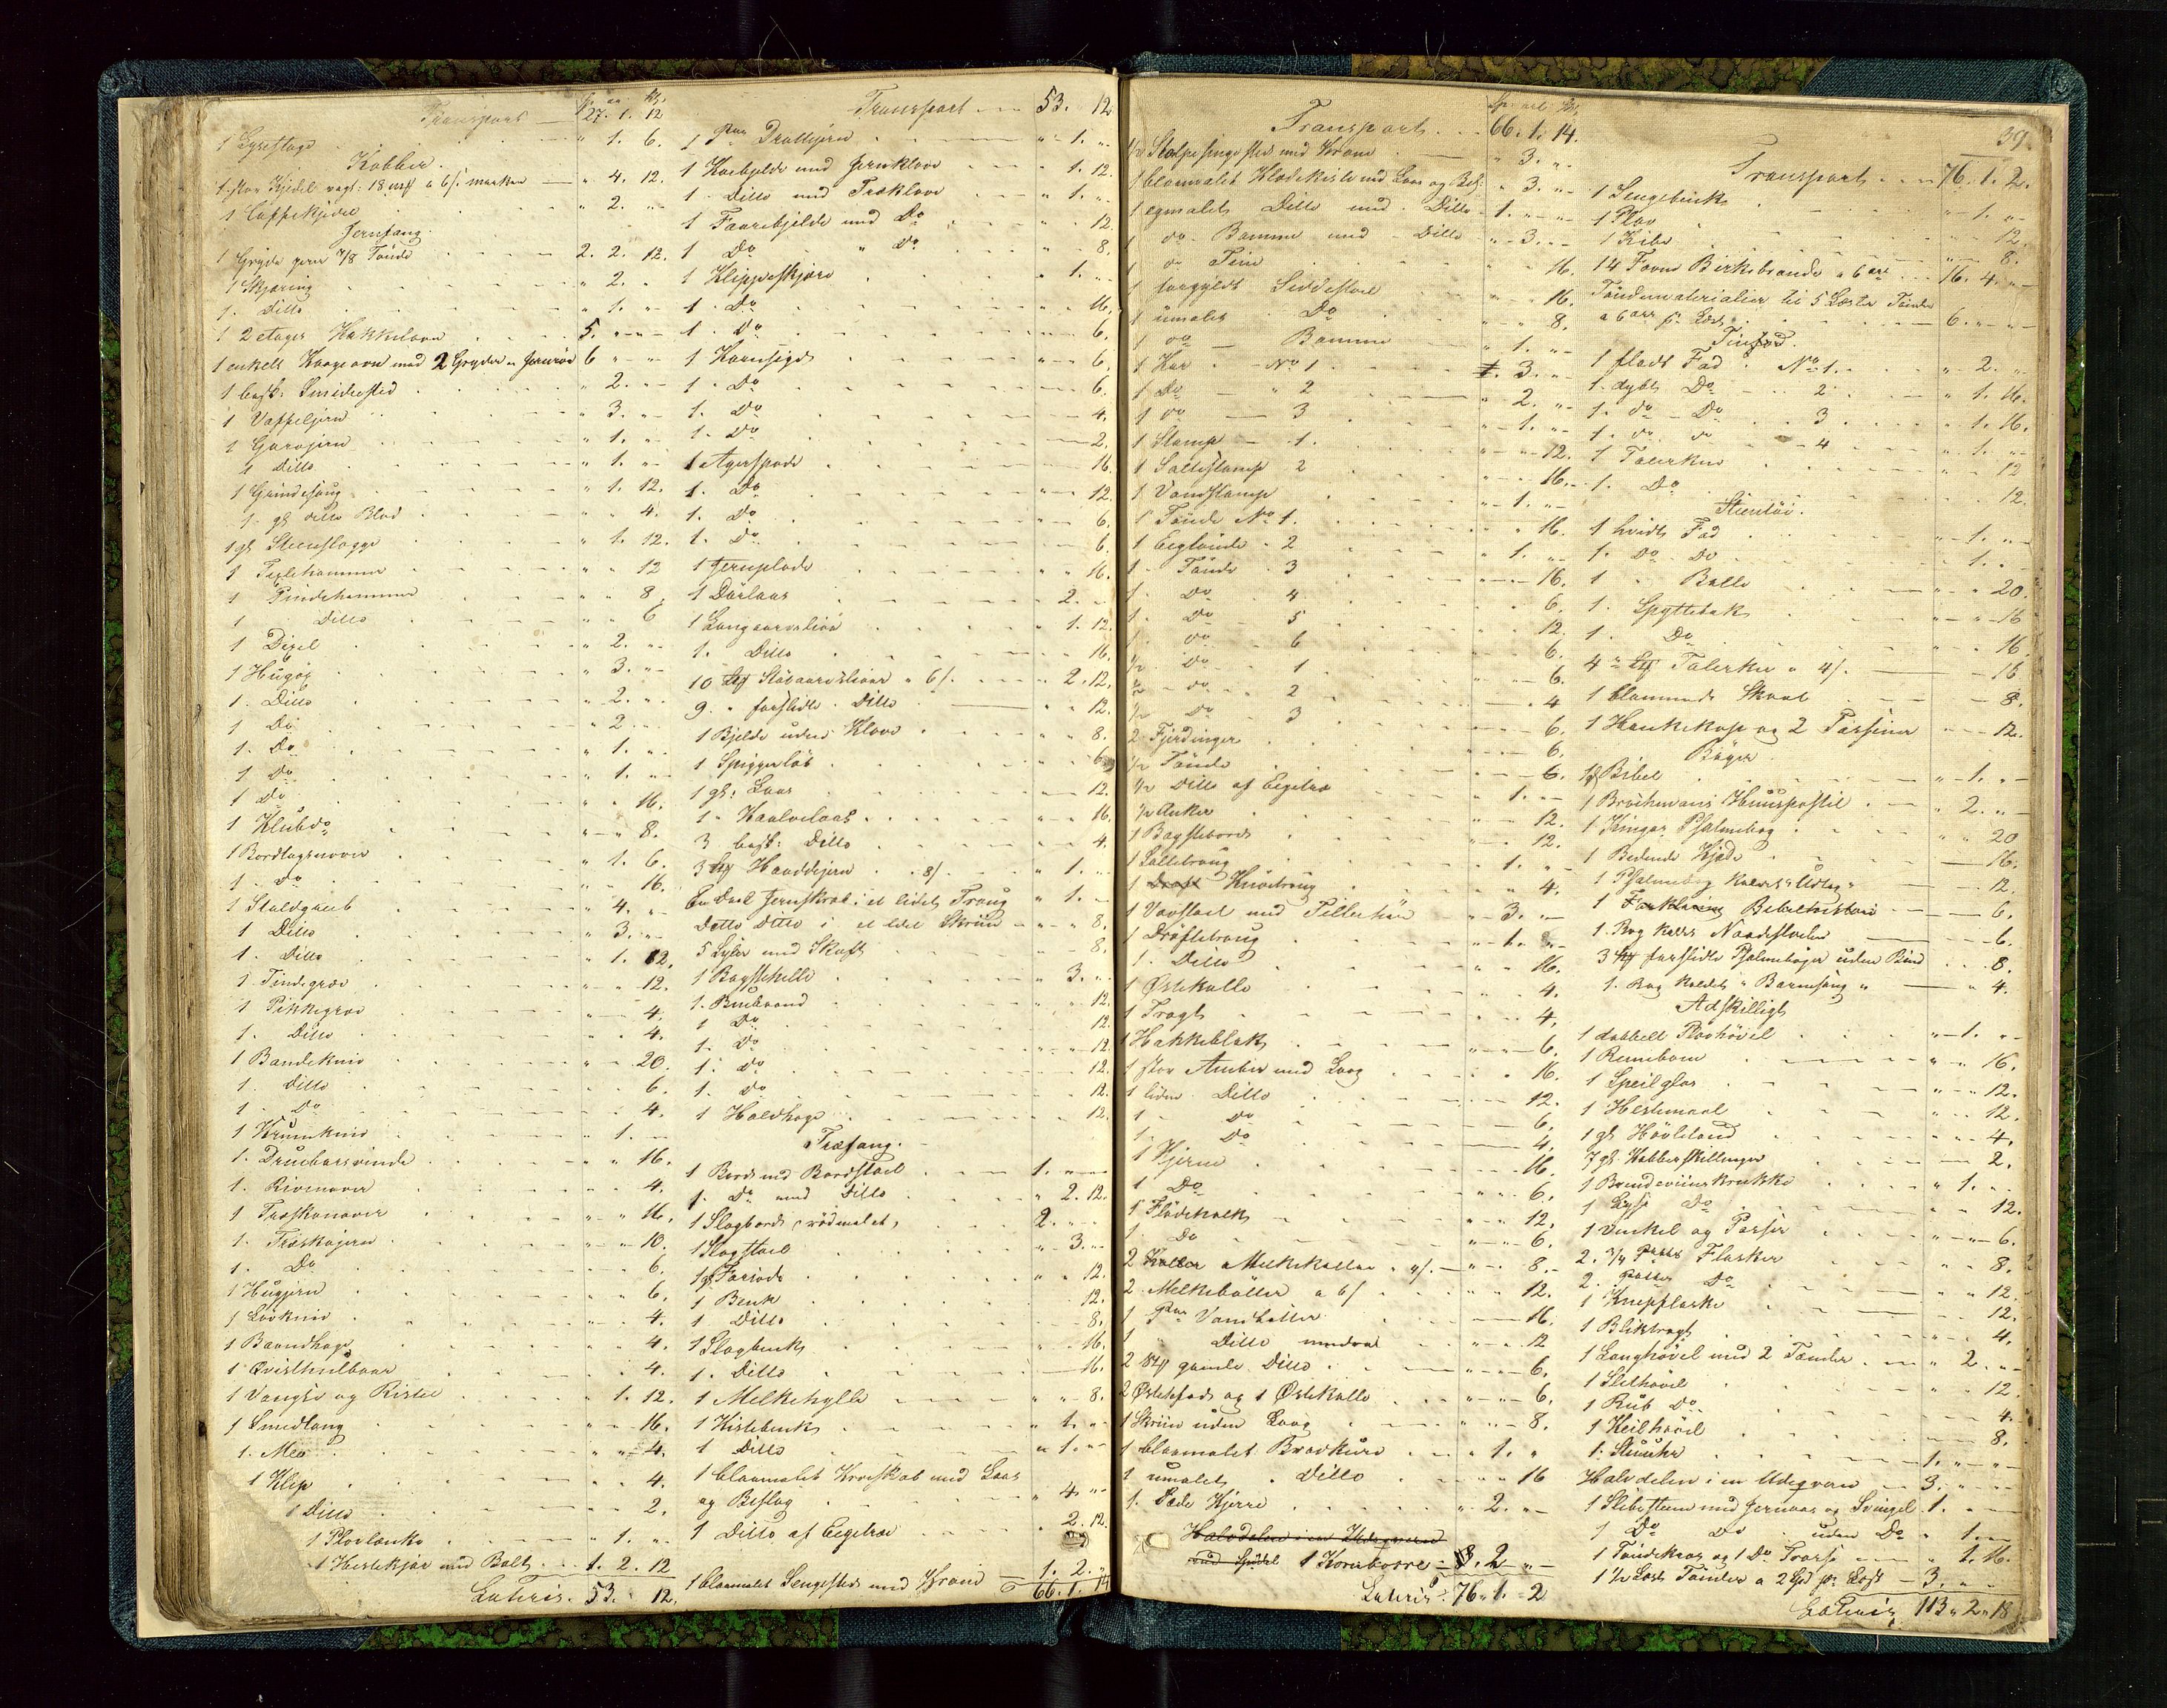 Transport — 27. 1. 12
1 Lysestage " 1. 6.
Kobber.
1. stor Kjedel vægt: 18 mk a 6 s. marken — " 4. 12.
1 Caffekjedel " 2. "
Jernfang.
1 Gryde paa 7/8 Tønde 2. 2. 12.
1 Skjæring " 2. "
1. Ditto " 1. "
1 2 etages Kakkelovn 5. " "
1 enkelt Kaageovn med 2 Gryder og Jernrør 6 " "
1 best: Smidested " 2. "
1 Vaffeljern " 3. "
1 Gorojern " 1. "
1 Ditto " 1. "
1 Grindesaug " 1. 12.
1. gl. ditto Blad " " 4.
1 gl. Steenslægge " 1. 12.
1 Texlehammer " " 12
1 Pindehammer " " 8.
1 Ditto " " 6
1 Dixel " 2. "
1 Hugøx " 3. "
1. Ditto " 2. "
1. Do " 2 "
1. Do " 1. "
1 Do " 1. "
1 Do " " 16.
1 Klubdo " " 8.
1 Bordlagsnaver " 1. 6.
1. do " " 16.
1 Staldgreb " 4. "
1 Ditto " 3. "
1. Ditto " 1. 12.
1. Tindegrev " " 12.
1 Pikkegrev " " 4.
1. Ditto " " 4.
1 Bandekniv " " 20.
1. Ditto " " 6.
1. Do " " 4.
1 Krumkniv " 1. "
1. Drueborsvinde " " 16.
1. Rivenaver " " 4.
1 Træskonaver " " 16.
1. Træskojern " " 10.
1. Do " " 6.
1 Hugjern " " 6.
1 Løvkniv " " 4.
1 Baandhage " " 4.
1 Qvisthulboer " " 4.
1 Vangsø og Ristel " 1. 12.
1 Smedtang " " 16.
1. Mei " " 4.
1 Klip " " 4.
1 Ditto " " 2.
1 Plovlænke " 1. "
1 Hestekjær med Bolt 1. 2. 12
Lateris. 53. " 12.
Transport 53. " 12
1 Par Drættejern " 1. "
1 Koebjelde med Jernklove " 1. 12.
1. Ditto med Træklove " 1. "
1 Faarebjelde med Do " " 12.
1 Do " Do " " 8.
1 Klippeskjære " 1. "
1. Do " " 16.
1. Do " " 6.
1 Kornsigd " " 6.
1. Do " " 6.
1. Do " " 4.
1. Do " " 2.
1 Agerspade " " 16
1. Do " " 12.
1. Do " " 6.
1. Do " " 6.
1 Jernplade " " 16.
1 Dørlaas " 2. "
1 Langorvsliøe " 1. 12.
1. Ditto " " 16.
10 stk Stutorvsliøer a 6 s. " 2. 12.
9. " forslidte Ditto " " 12.
1 Bjelde uden Klove " " 8.
1 Spiggerløb " " 6
1 gl. Laas " " 12.
1. Kavlelaas " " 16.
3 best: Ditto " " 4.
3 stk Haandejern a 8 s. " 1. "
En Deel Jernskrab i et lidet Traug " 1. "
Ditto Ditto i et lidet Skriin " " 8.
5 Syler med Skaft " " 8.
1 Bagstehelle " 3. "
1. Bueband " " 12.
1 Do " " 12.
1. Do " " 12.
1. do " " 12.
1. do " " 12.
1 Haldhage " " 12.
Træfang.
1 Bord med Bordstoel 1. " "
1. Do med Ditto " 2. 12.
1 Slagbord (rødmalet) 2. " "
1 Slagstoel " 3. "
1 gl. Farvode " " 12.
1 Benk " " 12.
1 Ditto " " 8.
1 Slagbenk " " 16.
1. Ditto " " 16.
1 Melkehylle " " 8.
1 Kistebenk " 1. "
1 Ditto " 1. "
1 blaamalet Kroeskab med Laas
og Beslag " 4. "
1 Ditto af Eegetræ " 2. 12.
1 blaamalet Sengested med Krone 1. 2. "
66. 1. 14
39.
Transport 66. 1. 14.
1/2 Stolpesengested med Krone " 3. "
1 blaamalet Klædekiste med Laas og Besl: " 3. "
1 egmalet Ditto med Ditto 1. " "
1 do Bomme med Ditto " 3. "
1 do Tine " " 16.
1 forgyldt Siddestoel " " 16.
1 umalet Do " " 8.
1 do — Bomme " 1. "
1 Kar No 1 " 3. "
1 Do " 2 " 2. "
1 do — 3 " 1. "
1 Stamp — 1. " " 12.
1 Saltestamp 2 " " 16.
1 Vandstamp " 1. "
1 Tønde No 1. " " 16.
1 Eegtønde " 2 " 1. "
1. Tønde " 3 " " 16.
1. Do " 4. " " 6.
1. Do 5 " " 12.
1. do 6 " " 6.
1/2 Do 1 " " 6.
1/2 do 2 " " 4
1/2 Do 3 " " 6.
2 Fjerdinger " " 6.
1/2 Tønde " " 6.
1/2 Ditto af Eegetræ " 1. "
1/2 Anker " " 12.
1 Bagstebord " " 12.
1 Saltetraug " 1. "
1 Knivetraug " " 4.
1 Vævstoel med Tilbehør " 3. "
1 Drøftetraug " 1. 8.
1. Ditto " " 16.
1 Østekolle " " 4.
1 Tragt " " 4.
1 Hakkeblok " " 6.
1 stor Ambar med Laag " " 16.
1 liden Ditto " " 12.
1 Do " " 6.
1. Do " " 4.
1 Kjerne " " 16.
1 Do " " 6.
1 Flødekolk " " 12.
1. Do " " 6.
2 Melkekoller a 4 s. " " 8.
2 Melkebøtter a 6 s " " 12.
1 Par Vandbøtter " " 16.
1 " Ditto mindre " " 12
2 stk gamle Ditto " " 6.
2 Østefad og 1 Østekolle " " 6.
1 Skriin uden Laag " " 8.
1 blaamalet Brødkurv " 1. "
1 umalet Ditto " " 16
1. Læde Kjerre " 2. "
Halvdelen i en Udeqværn
1 Kornkasse 3. 2 "
Lateris 76. 1. 2
Transport 76. 1. 2.
1 Sengebenk " 1. "
1 Plov " " 12.
1 Kibe " " 8.
14 Favne Birkebrænde a 6 ort 16. 4. "
Tøndematerialier til 5 Læster Tønder
a 6 ort pr Læst 6. " "
Tinfad.
1 fladt Fad No 1. " 2. "
1. dybt Do 2 " 1. 16.
1. do Do 3 " 1. 16.
1. do do 4 " 1. "
1 Talerken " " 12
1. Do " " 12.
Steentøi.
1 hvidt Fad " 1. "
1. Do Do " 1. "
1 " Bolle " " 20.
1. Spyttebak " " 16
1. Do " " 16.
4 stk Talerker a 4 s. " " 16
1 blommede Skaal " " 8.
1 Hankekop og 2 Tassiner " " 12.
Bøger
1 gl Bibel " 1. "
1 Brochmans Huuspostil " 2. "
1 Kingos Psalmebog " " 20
1 Bedende Kjæde " " 16.
1 Psalmebog kaldet "Udtog" " " 12.
1 Bibelhistorie " " 6.
1. Bog kaldet Naadestolen " " 6.
3 stk forslidte Psalmebøger uden Bind " " 8.
1. Bog kaldet "Barnesang" " " 4.
Adskilligt
1 dobbelt Pløihøvel " 1. "
1 Rennebom " " 16.
1 Speilglas " " 12.
1 Hestemaal " " 12.
1 gl Høvletand " " 4.
7 gl. Kobberskillinger " " 2.
1 Brændeviinskrukke " 1. "
1 Lysse Do " " 12.
1 Vinkel og Passer " " 6.
2. 3/4 Potts Flasker " " 8.
2. Potter Do " " 12
1 Knepflaske " " 12.
1 Bliktragt " " 4.
1 Langhøvel med 2 Tænder " 2. "
1 Sletthøvel " " 12.
1 Rub Do " " 4.
1 Keilhøvel " " 8.
1. Stuuhr 1. " "
Halvdelen i en Udeqværn 3. " "
1 Slibesteen med Jernaas og Svingel 1. " "
1 Do Do uden Do " 1. "
1 Tøndekros og 1 Do " 1. 16.
1 1/2 Læst Tønder a 2 Spd pr Læst 3. " "
Lateris 113. 2. 18